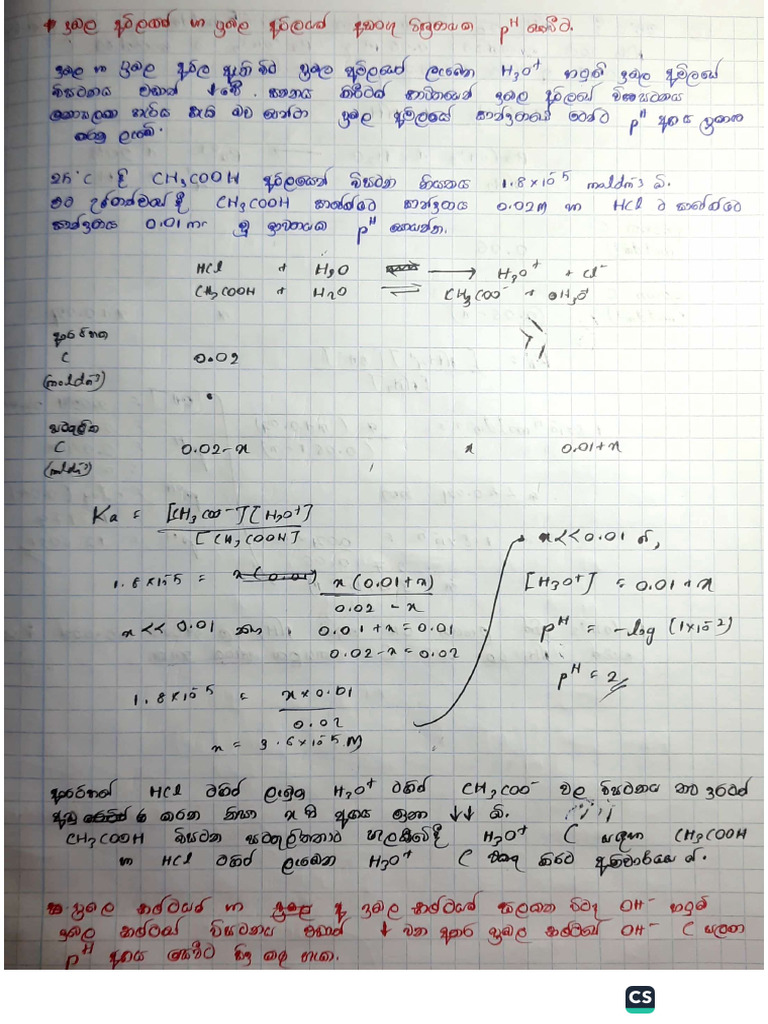 * දුබල අම්ලයක් හා ප්‍රබල අම්ලයක් අතර මිශ්‍රණයක pH සෙවීම.
දුබල හා ප්‍රබල අම්ල ඇති විට ප්‍රබල අම්ලයෙන් ලැබෙන H₃O⁺ හමුවේ දුබල අම්ලයේ
විඝටනය ↓ වේ. දුබල අම්ලයේ විඝටනය
හැකි බව ප්‍රබල අම්ලයේ සාන්ද්‍රණයෙන් pH අගය
25°C දී CH₃COOH අම්ලයෙහි විඝටන නියතය 1.8×10⁻⁵ moldm⁻³ යි.
උෂ්ණත්වයේ දී CH₃COOH සාන්ද්‍රණය 0.02M හා HCl
සාන්ද්‍රණය 0.01 වූ ද්‍රාවණයක pH සොයන්න.
HCl + H₂O → H₃O⁺ + Cl⁻
CH₃COOH + H₂O ⇌ CH₃COO⁻ + H₃O⁺
ආරම්භක
C 0.02
(moldm⁻³)
සමතුලිත
C 0.02-x x 0.01+x
(moldm⁻³)
Ka = [CH₃COO⁻][H₃O⁺] / [CH₃COOH]
1.8×10⁻⁵ = x(0.01+x) / 0.02 - x
x << 0.01 නිසා 0.01+x = 0.01
0.02-x = 0.02
1.8×10⁻⁵ = x×0.01 / 0.02
x = 3.6×10⁻⁵ M
x<<0.01 නි,
[H₃O⁺] = 0.01+x
pH = -log(1×10⁻²)
pH = 2
HCl මගින් ලැබුණු H₃O⁺ මගින් CH₃COO⁻ වල විඝටනය තව දුරටත්
අඩු කරන නිසා x හි අගය ඉතා ↓↓ යි.
CH₃COOH විඝටන සමතුලිතතාව සැලකීමේදී H₃O⁺ C සඳහා CH₃COOH
හා HCl මගින් ලැබෙන H₃O⁺ C එකතු කිරීම අනිවාර්යය වේ.
ප්‍රබල භෂ්මයක් හා දුබල භෂ්මයක් සලකන විටද OH⁻ හමුවේ
දුබල භෂ්මයේ විඝටනය ↓ වන අතර ප්‍රබල භෂ්මයේ OH⁻ C සලකා
pH අගය සෙවීම සිදු කළ හැක.
CS